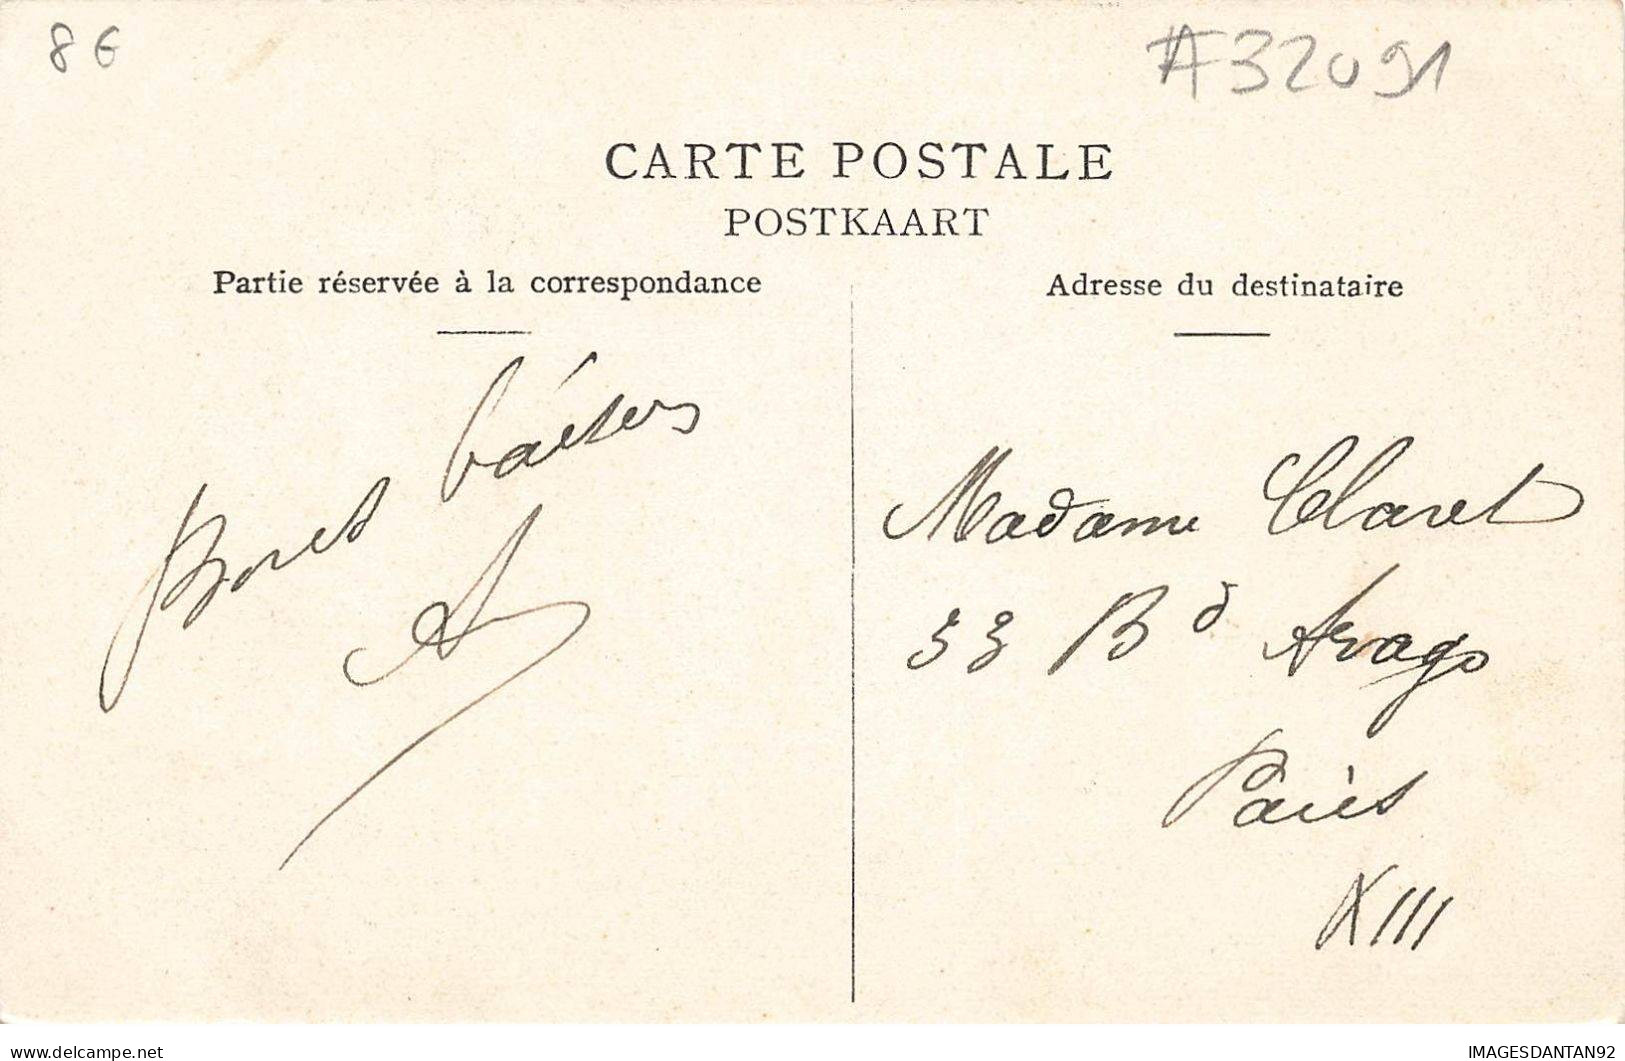 8 €
#32091
CARTE POSTALE
POSTKAART
Partie réservée à la correspondance
Adresse du destinataire
baisers
A
Madame Claret
33 Bd Arago
Paris
XIII
IMAGESDANTAN92
delcampe.net